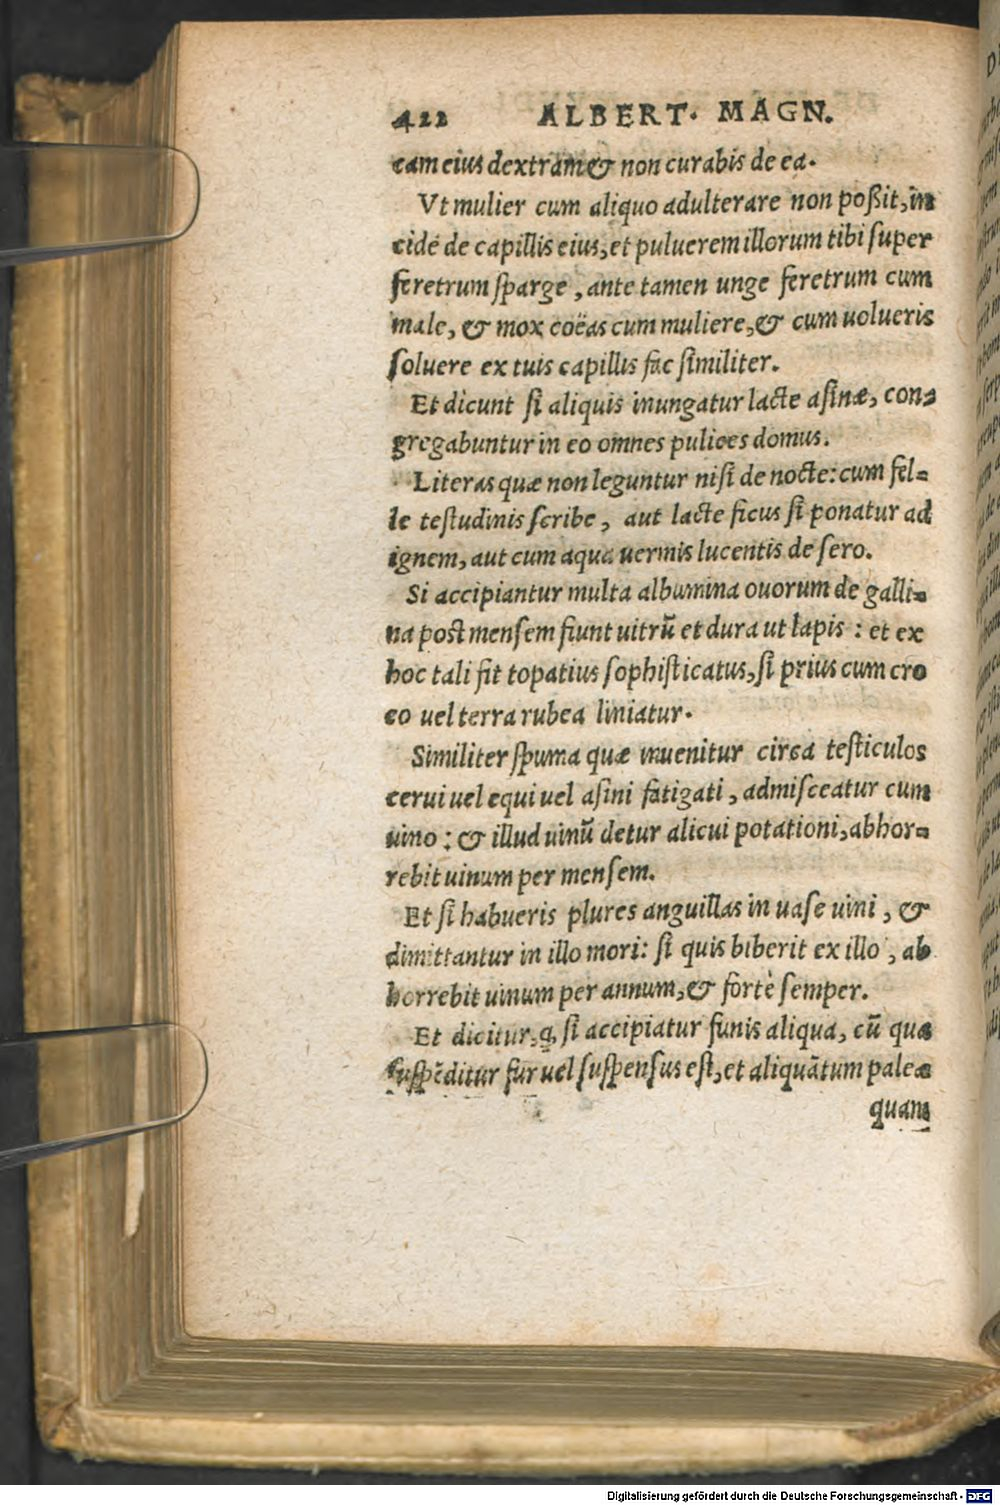 422 ALBERT. MAGN.
cam eius dextram & non curabis de ea.
Vt mulier cum aliquo adulterare non poßit, in
cide de capillis eius, et puluerem illorum tibi super
feretrum sparge, ante tamen unge feretrum cum
male, & mox coëas cum muliere, & cum uolueris
soluere ex tuis capillis fac similiter.
Et dicunt si aliquis inungatur lacte asinæ, con=
gregabuntur in eo omnes pulices domus.
Literas quæ non leguntur nisi de nocte: cum fel=
le testudinis scribe, aut lacte ficus si ponatur ad
ignem, aut cum aqua uermis lucentis de sero.
Si accipiantur multa albumina ouorum de galli=
na post mensem fiunt uitrũ et dura ut lapis : et ex
hoc tali fit topatius sophisticatus, si prius cum cro
co uel terra rubea liniatur.
Similiter spuma quæ inuenitur circa testiculos
cerui uel equi uel asini fatigati, admisceatur cum
uino : & illud uinũ detur alicui potationi, abhor=
rebit uinum per mensem.
Et si habueris plures anguillas in uase uini, &
dimittantur in illo mori: si quis biberit ex illo, ab
horrebit uinum per annum, & fortè semper.
Et dicitur, q̃ si accipiatur funis aliqua, cũ qua
suspẽditur fur uel suspensus est, et aliquãtum paleæ
quam
Digitalisierung gefördert durch die Deutsche Forschungsgemeinschaft - DFG